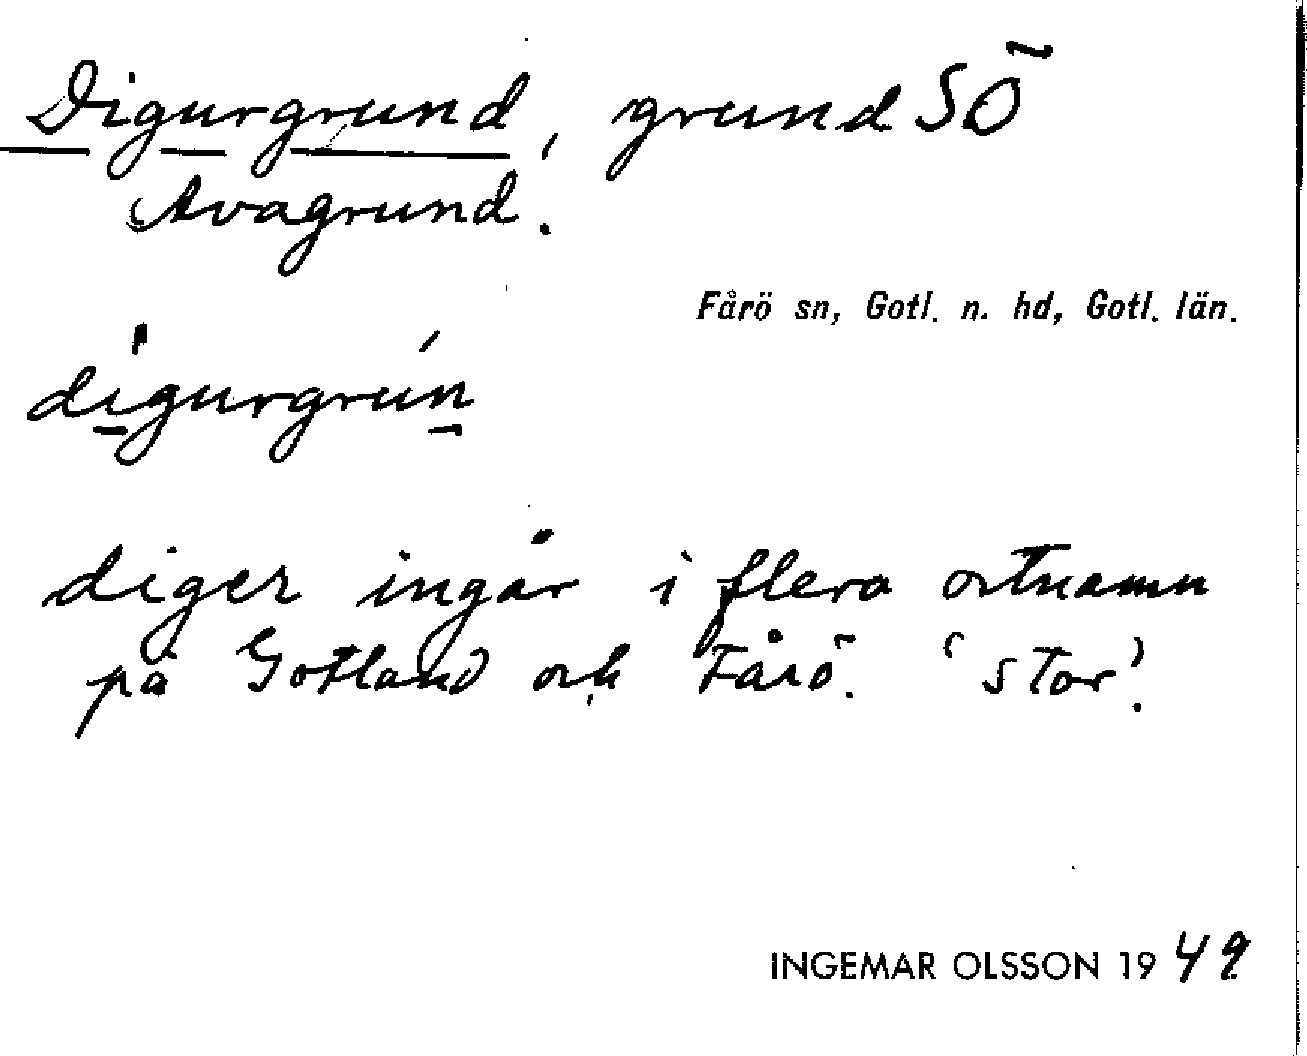 Digurgrund, grund SÖ
Avagrund.
Fårö sn, Gotl. n. hd, Gotl. län.
digurgrún
diger ingår i flera ortnamn
på Gotland och Fårö. 'stor'.
INGEMAR OLSSON 1949